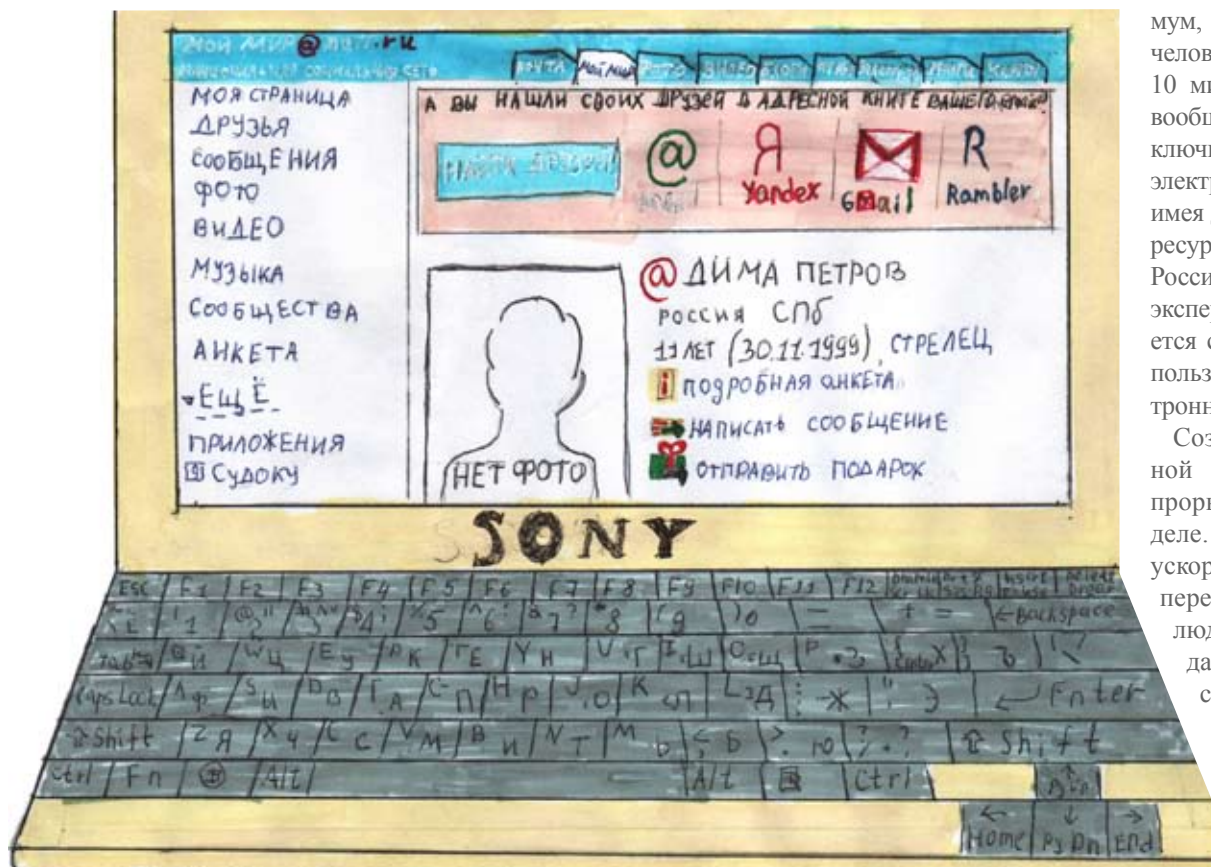 МОЙ МИР@mail.ru
ПОЧТА МОЙ МИР ФОТО ВИДЕО
МОЯ СТРАНИЦА
ДРУЗЬЯ
СООБЩЕНИЯ
ФОТО
ВИДЕО
МУЗЫКА
СООБЩЕСТВА
АНКЕТА
ЕЩЁ
ПРИЛОЖЕНИЯ
СУДОКУ
А ВЫ НАШЛИ СВОИХ ДРУЗЕЙ В АДРЕСНОЙ КНИГЕ ВАШЕГО
НАЙТИ ДРУЗЕЙ!
@ Я R
Yandex GMail Rambler
@ ДИМА ПЕТРОВ
РОССИЯ СПб
11 ЛЕТ (30.11.1999), СТРЕЛЕЦ
i ПОДРОБНАЯ АНКЕТА
НАПИСАТЬ СООБЩЕНИЕ
ОТПРАВИТЬ ПОДАРОК
НЕТ ФОТО
SONY
ESC F1 F2 F3 F4 F5 F6 F7 F8 F9 F10 F11 F12
1 2 3 4 5 6 7 8 9 0 — + = ← Backspace
Tab Й W Ц E У К Е Y Н Г Ш О Щ P З Х Ъ
Caps Lock Ф S Ы D В А П H Р J О K Л L Д Ж Э ← Enter
Shift Z Я X Ч С С V М В И N Т М Ь Б Ю Shift
Ctrl Fn Alt Alt Ctrl
← ↓ →
Home Pg Dn End
мум,
челов
10 ми
вообщ
ключи
электр
имея
ресур
Росси
экспер
ется с
польз
тронн
Соз
ной
прорь
деле.
ускор
пере
люд
да
с